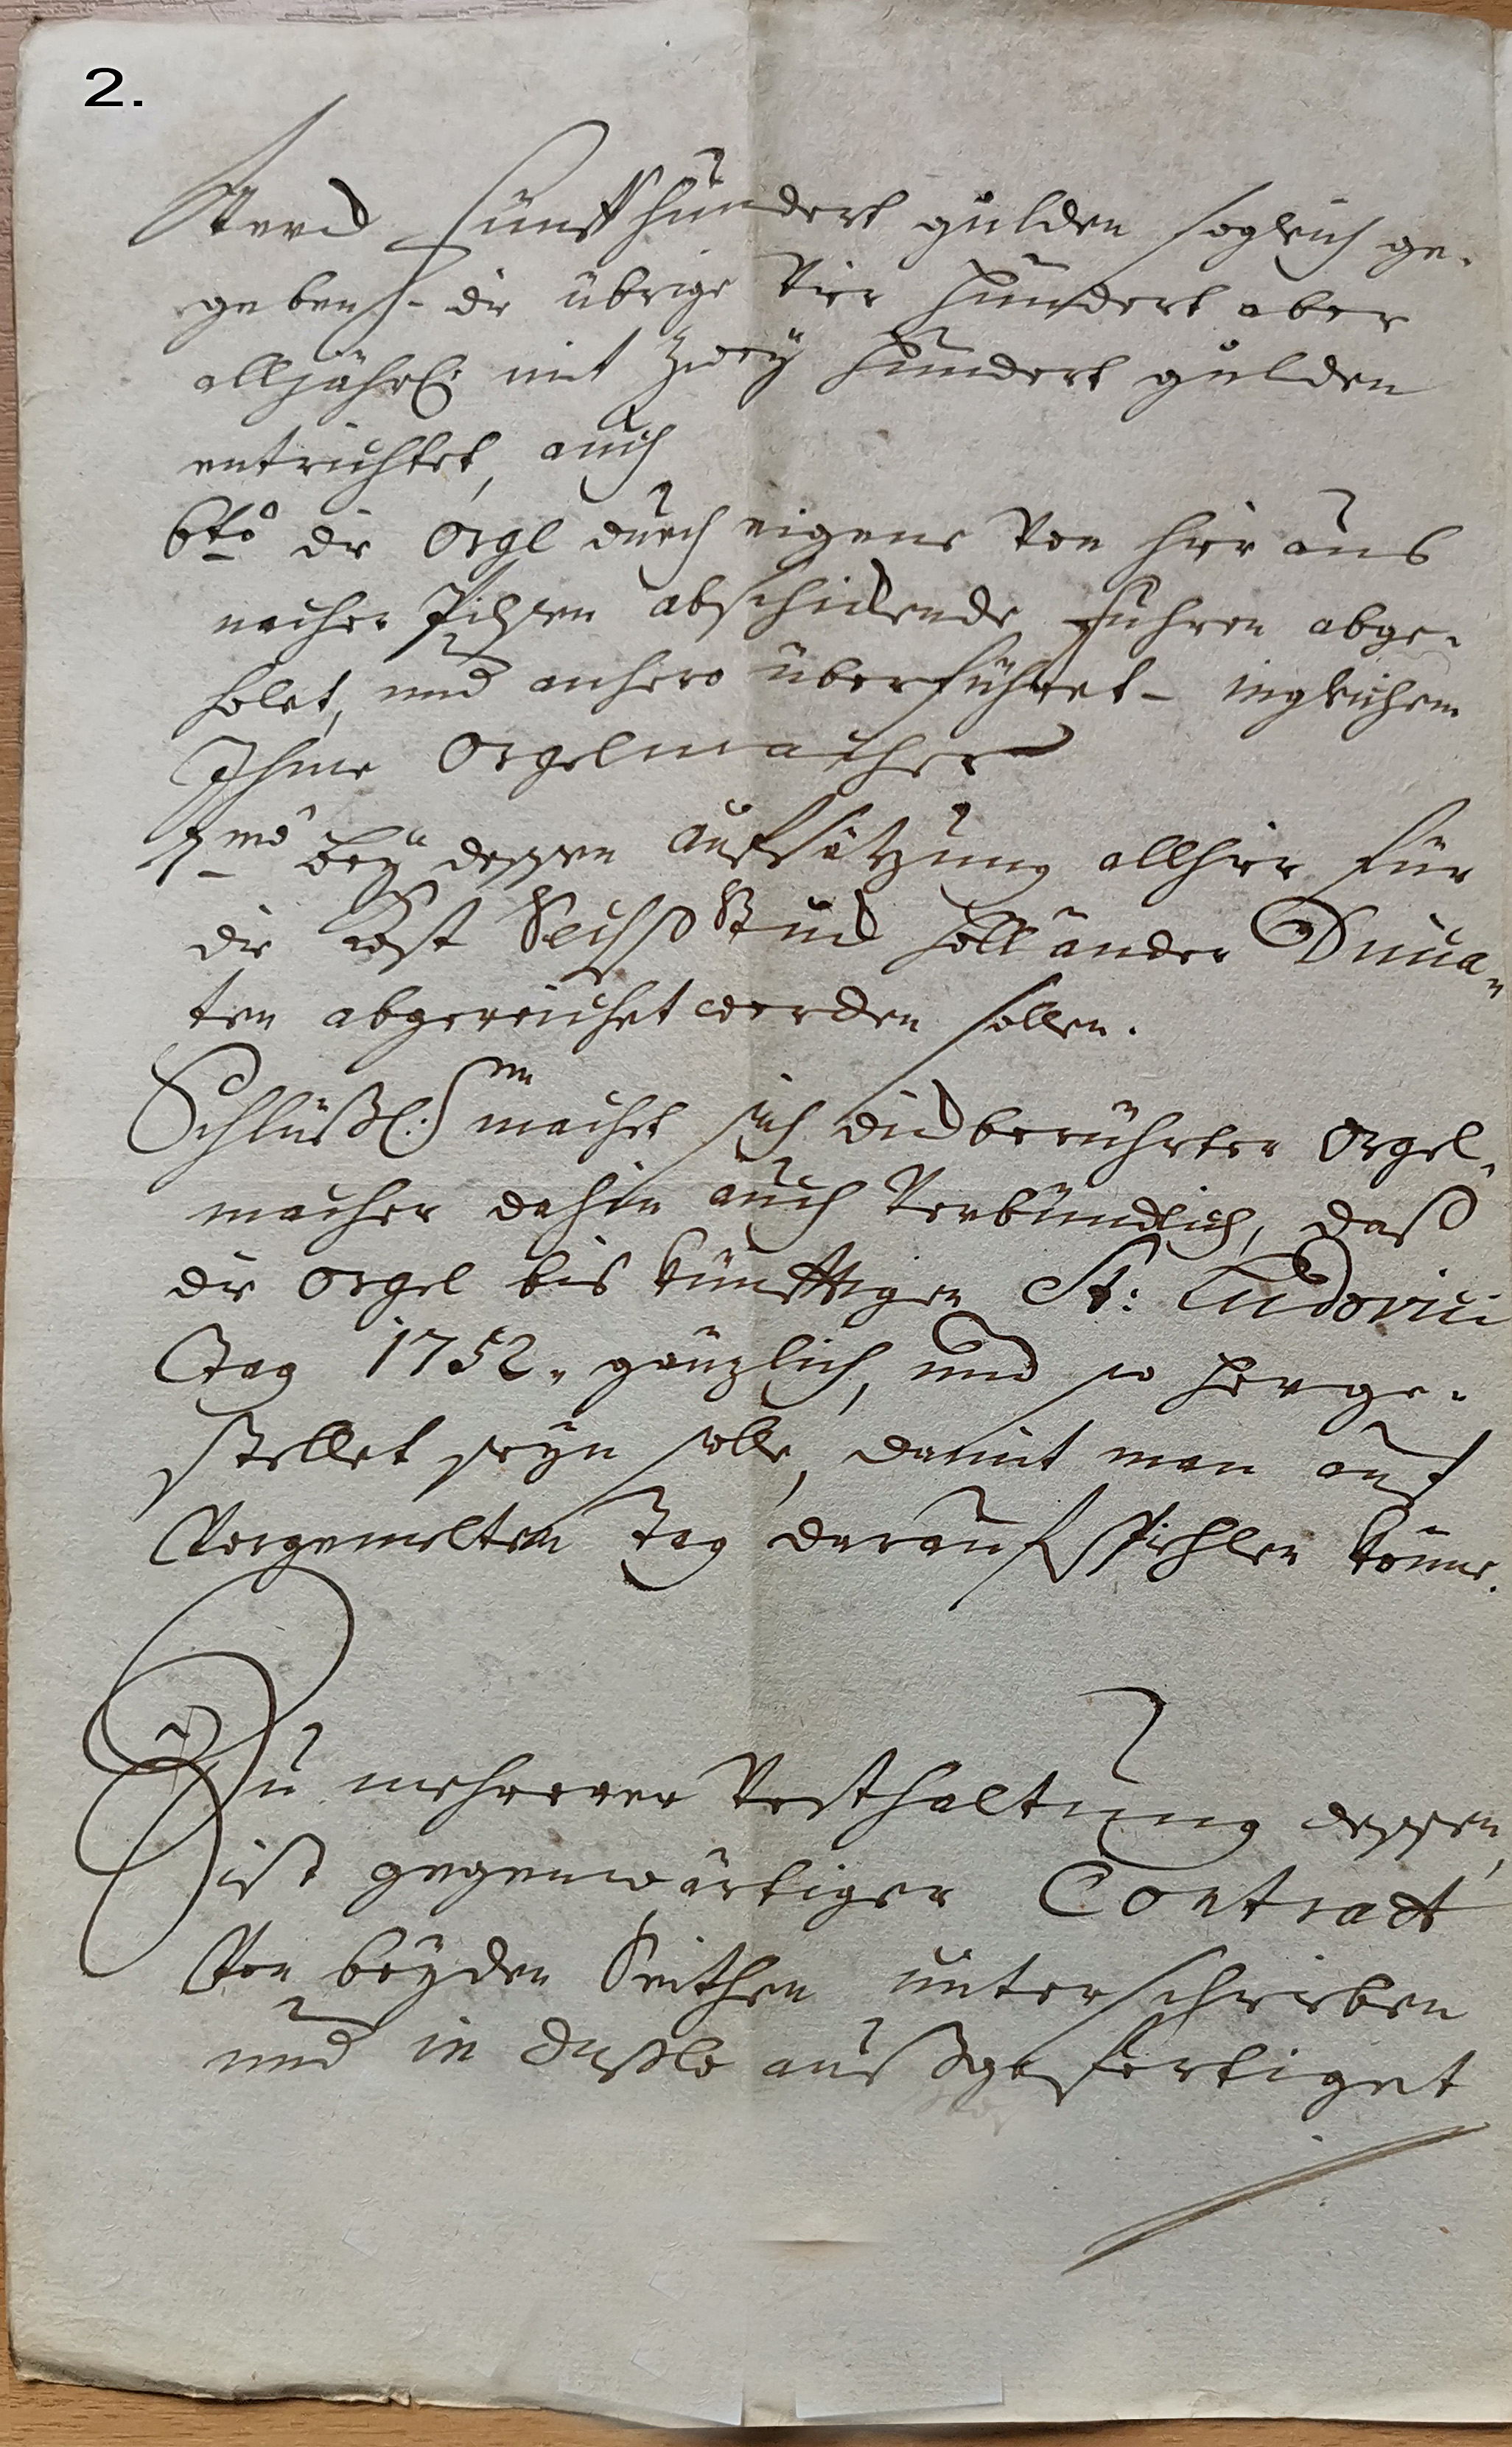 2.
Stand fünffhundert gulden sogleich ge-
geben - die übrige Vier Hundert aber
alljährl: mit Zwey Hundert gulden
entrichtet, auch
6to die Orgl durch eigene Von hier aus
nacher Pilsen abschickende Fuhren abge-
holet, und anhero überführet - ingleichen
Ihme Orgelmacher
7mo Bey dessen Aufsätzung allhier für
die Kost Sechß Stuck Holländer Duca-
ten abgereichet werden sollen.
Schlüßl:n machet sich dickberührter Orgel-
macher dahin auch Verbündlich, daß
die Orgel bis künfftigen St: Ludovici
Tag 1752. gänzlich, und so herge-
stellet seyn solle, damit man auf
Vorgemelten Tag darauf spiehlen könne.
Zu mehrerer Vesthaltung dessen,
ist gegenwärtiger Contract
Von beyden Seithen unterschrieben
und in duplo außgefertiget